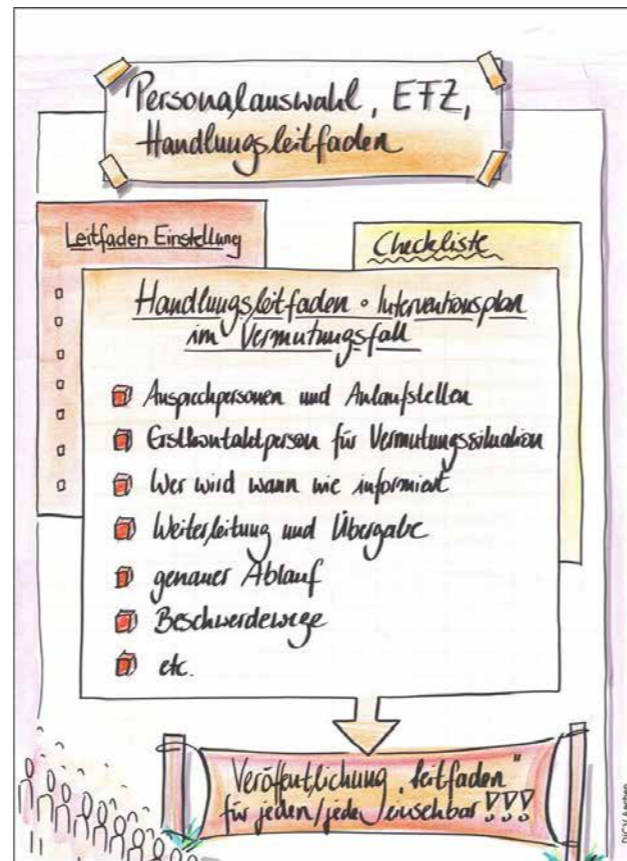 Personalauswahl, EFZ,
Handlungsleitfaden
Leitfaden Einstellung
Checkliste
Handlungsleitfaden • Interventionsplan
im Vermutungsfall
Ansprechpersonen und Anlaufstellen
Erstkontaktperson für Vermutungssituation
Wer wird wann wie informiert
Weiterleitung und Übergabe
genauer Ablauf
Beschwerdewege
etc.
Veröffentlichung „Leitfaden"
für jeden/jede einsehbar!!!
DiCV Aachen